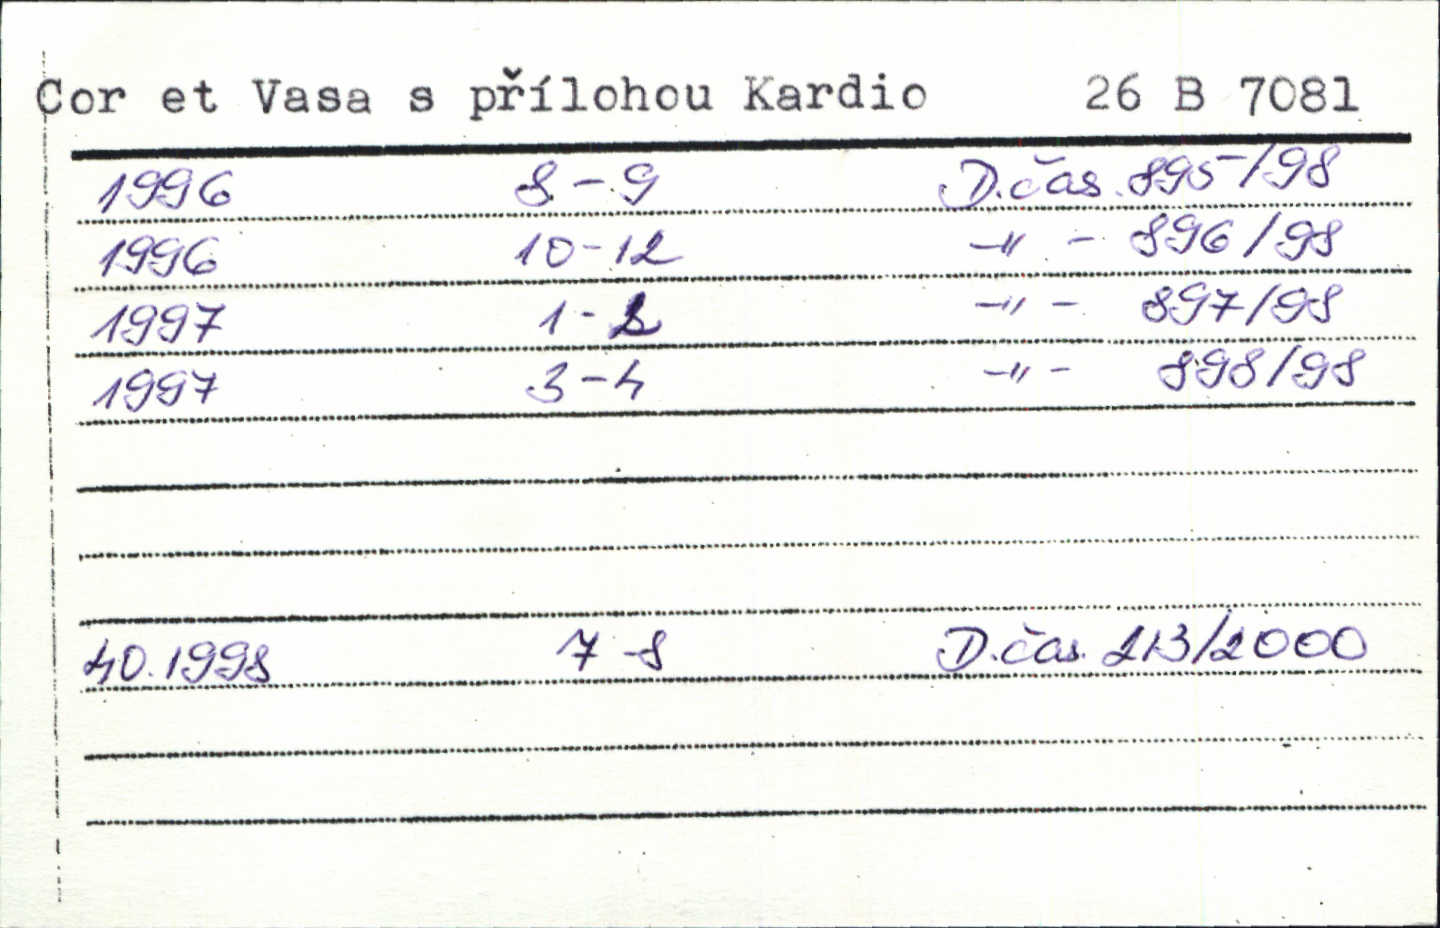 Cor et Vasa s přílohou Kardio 26 B 7081
1996 8-9 D.čas. 895/98
1996 10-12 -"- 896/98
1997 1-2 -"- 897/98
1997 3-4 -"- 898/98
40.1998 7-8 D.čas. 213/2000